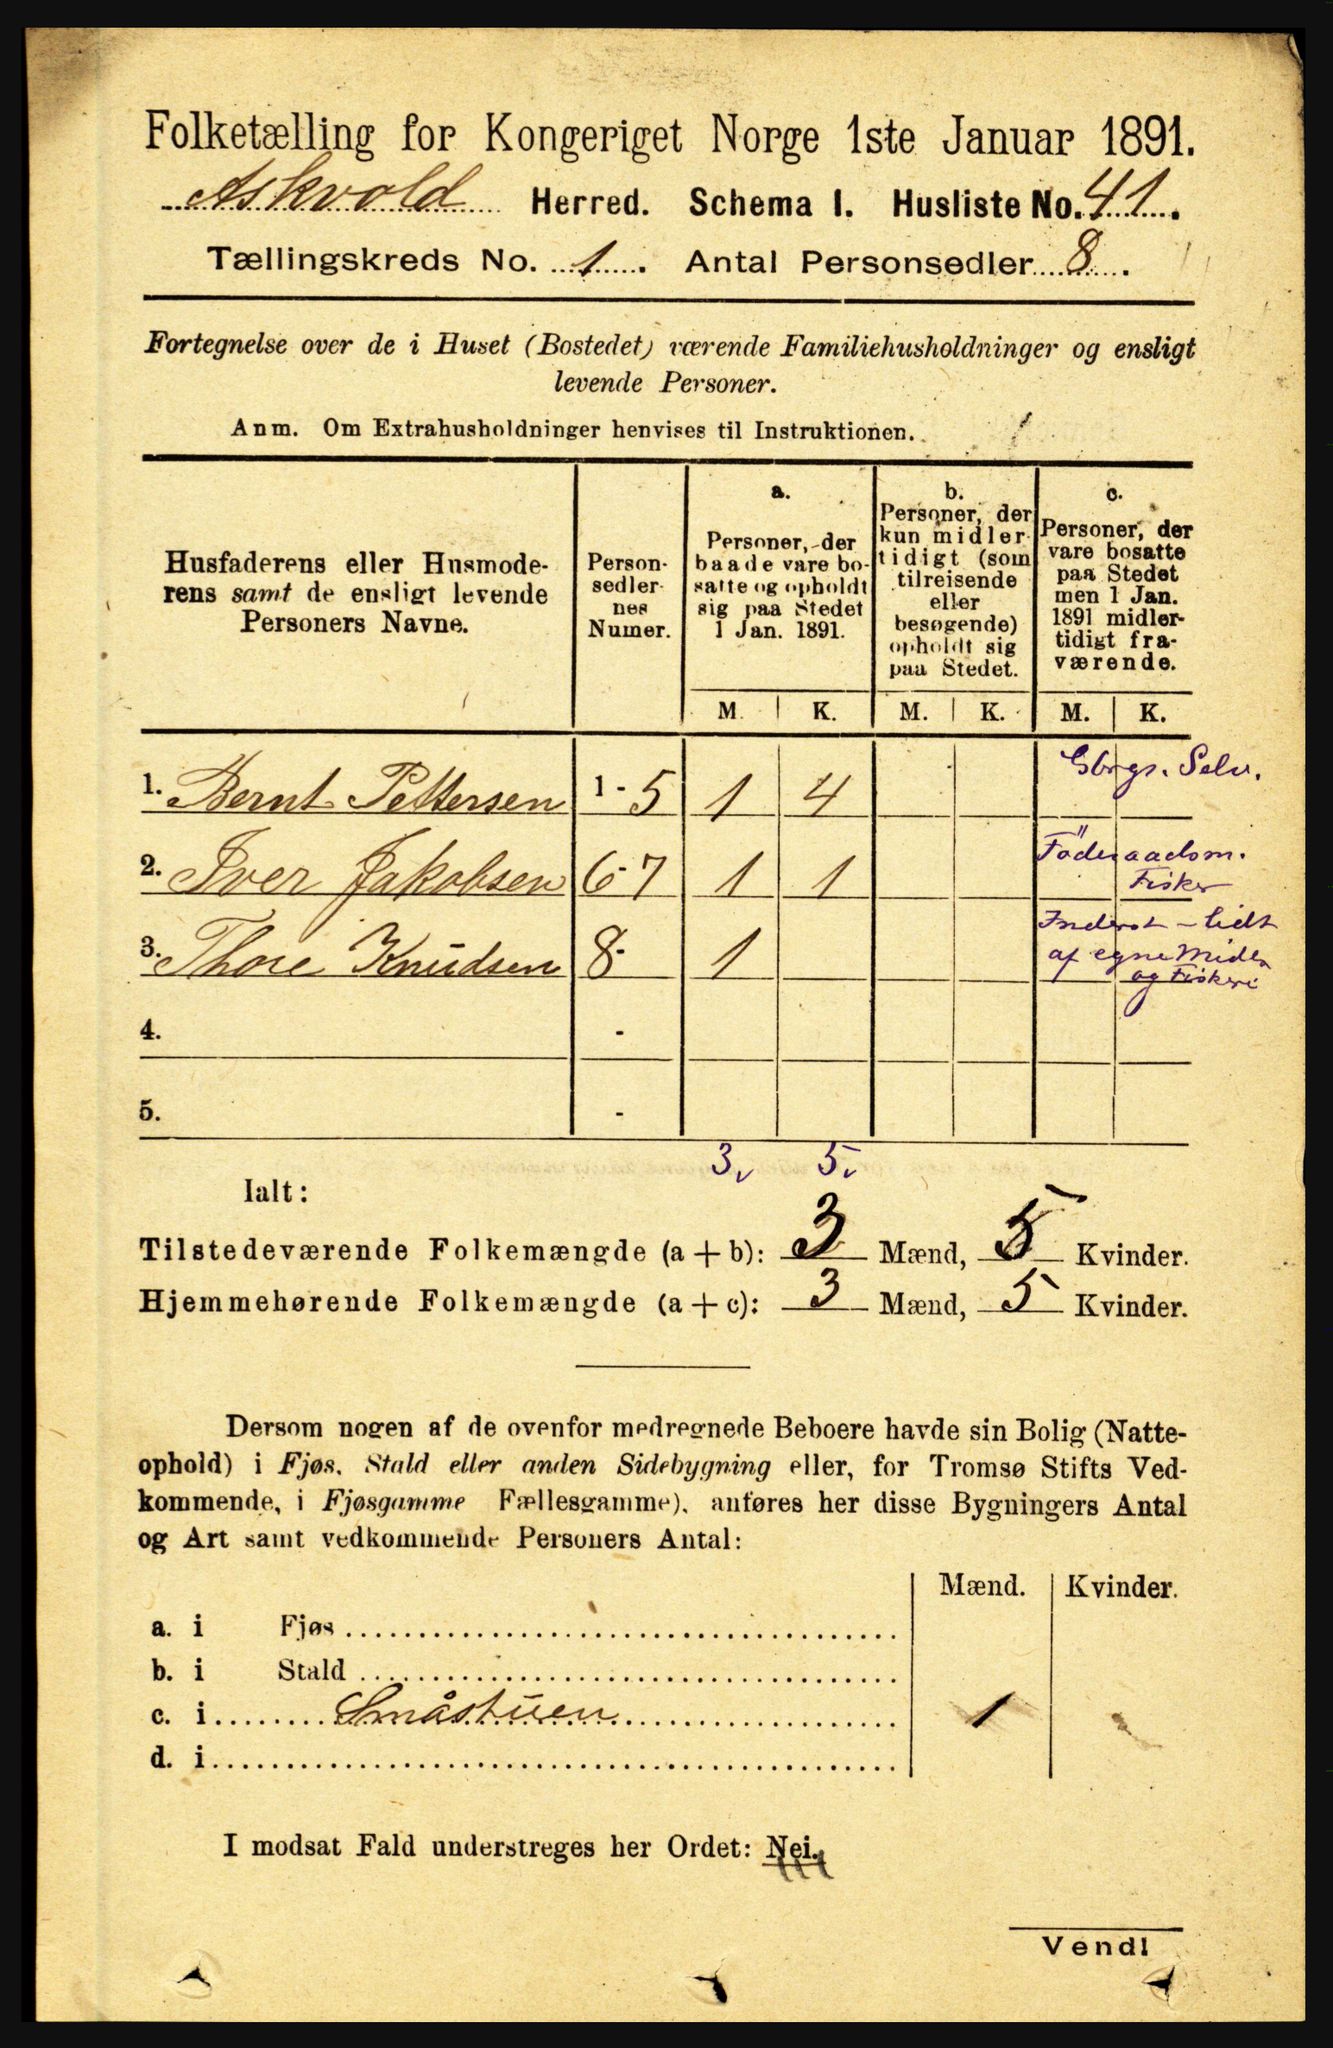 Folketælling for Kongeriget Norge 1ste Januar 1891.
Askvold Herred. Schema I. Husliste No. 41.
Tællingskreds No. 1. Antal Personsedler 8.
Fortegnelse over de i Huset (Bostedet) værende Familiehusholdninger og ensligt
levende Personer.
Anm. Om Extrahusholdninger henvises til Instruktionen.
Husfaderens eller Husmode-
rens samt de ensligt levende
Personers Navne.
Person-
sedler-
nes
Numer.
a.
Personer, der
baade vare bo-
satte og opholdt
sig paa Stedet
1 Jan. 1891.
b.
Personer, der
kun midler-
tidigt (som
tilreisende
eller
besøgende)
opholdt sig
paa Stedet.
c.
Personer, der
vare bosatte
paa Stedet
men 1 Jan.
1891 midler-
tidigt fra-
værende.
M. K. M. K. M. K.
1. Bernt Pettersen 1 - 5 1 4 Gbrgs. Selv.
2. Iver Jakobsen 6-7 1 1 Föderaadsm.
Fisker
3. Thore Knudsen 8- 1 Inderst - lidt
af egne Midler
og Fiskeri
4. -
5. -
3 5
Ialt:
Tilstedeværende Folkemængde (a + b): 3 Mænd, 5 Kvinder.
Hjemmehørende Folkemængde (a + c): 3 Mænd, 5 Kvinder.
Dersom nogen af de ovenfor medregnede Beboere havde sin Bolig (Natte-
ophold) i Fjøs, Stald eller anden Sidebygning eller, for Tromsø Stifts Ved-
kommende, i Fjøsgamme Fællesgamme), anføres her disse Bygningers Antal
og Art samt vedkommende Personers Antal:
Mænd. Kvinder.
a. i Fjøs
b. i Stald
c. i Småstuen 1
d. i
I modsat Fald understreges her Ordet: Nei.
Vendl